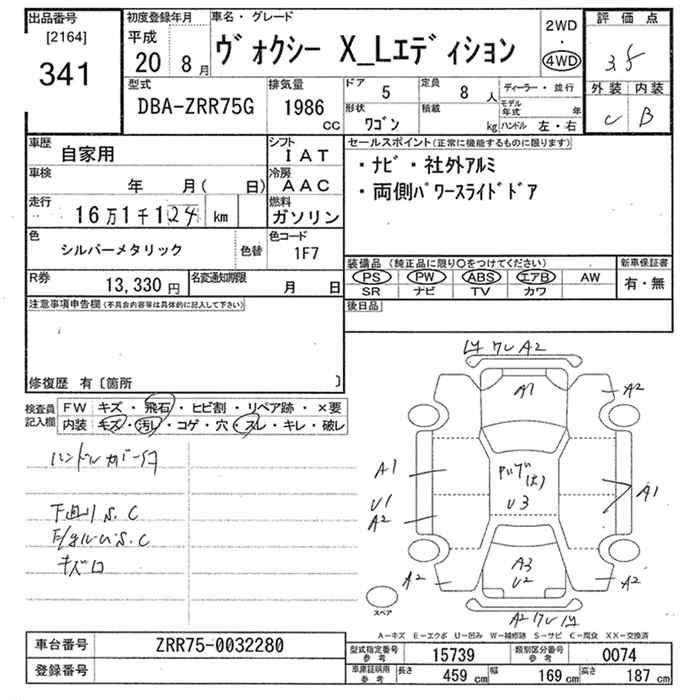 出品番号
[2164]
341
初度登録年月
平成
20 8月
車名・グレード
ヴォクシー X_Lエディション
2WD
・
4WD
評価点
3.5
外装 内装
C B
型式
DBA-ZRR75G
排気量
1986
CC
ドア
5
定員
8 人
形状
ワゴン
積載
kg
ディーラー・並行
モデル年式 年
ハンドル 左・右
車歴
自家用
シフト
IAT
車検
年 月( 日)
冷房
AAC
走行
16万1千124 km
燃料
ガソリン
色
シルバーメタリック
色替
色コード
1F7
R券
13,330 円
名変通知期限
月 日
セールスポイント(正常に機能するものに限ります)
・ナビ・社外アルミ
・両側パワースライドドア
装備品(純正品に限り○をつけてください)
新車保証書
PS PW ABS エアB AW
有・無
SR ナビ TV カワ
後日品
注意事項申告欄(不具合内容等は具体的に記入して下さい)
修復歴 有〔箇所 〕
検査員
記入欄
FW キズ・飛石・ヒビ割・リペア跡・×要
内装 キズ・汚レ・コゲ・穴・スレ・キレ・破レ
下廻りS.C
キズ
A2
A1
A2
A1
U1
A2
U3
A1
A3
U2
A2
A2
A2
スペア
A-キズ E-エクボ U-凹み W-補修跡 S-サビ C-腐食 XX-交換済
車台番号
ZRR75-0032280
登録番号
型式指定番号
参考
15739
類別区分番号
参考
0074
車庫証明用
参考
長さ
459 cm
幅
169 cm
高さ
187 cm